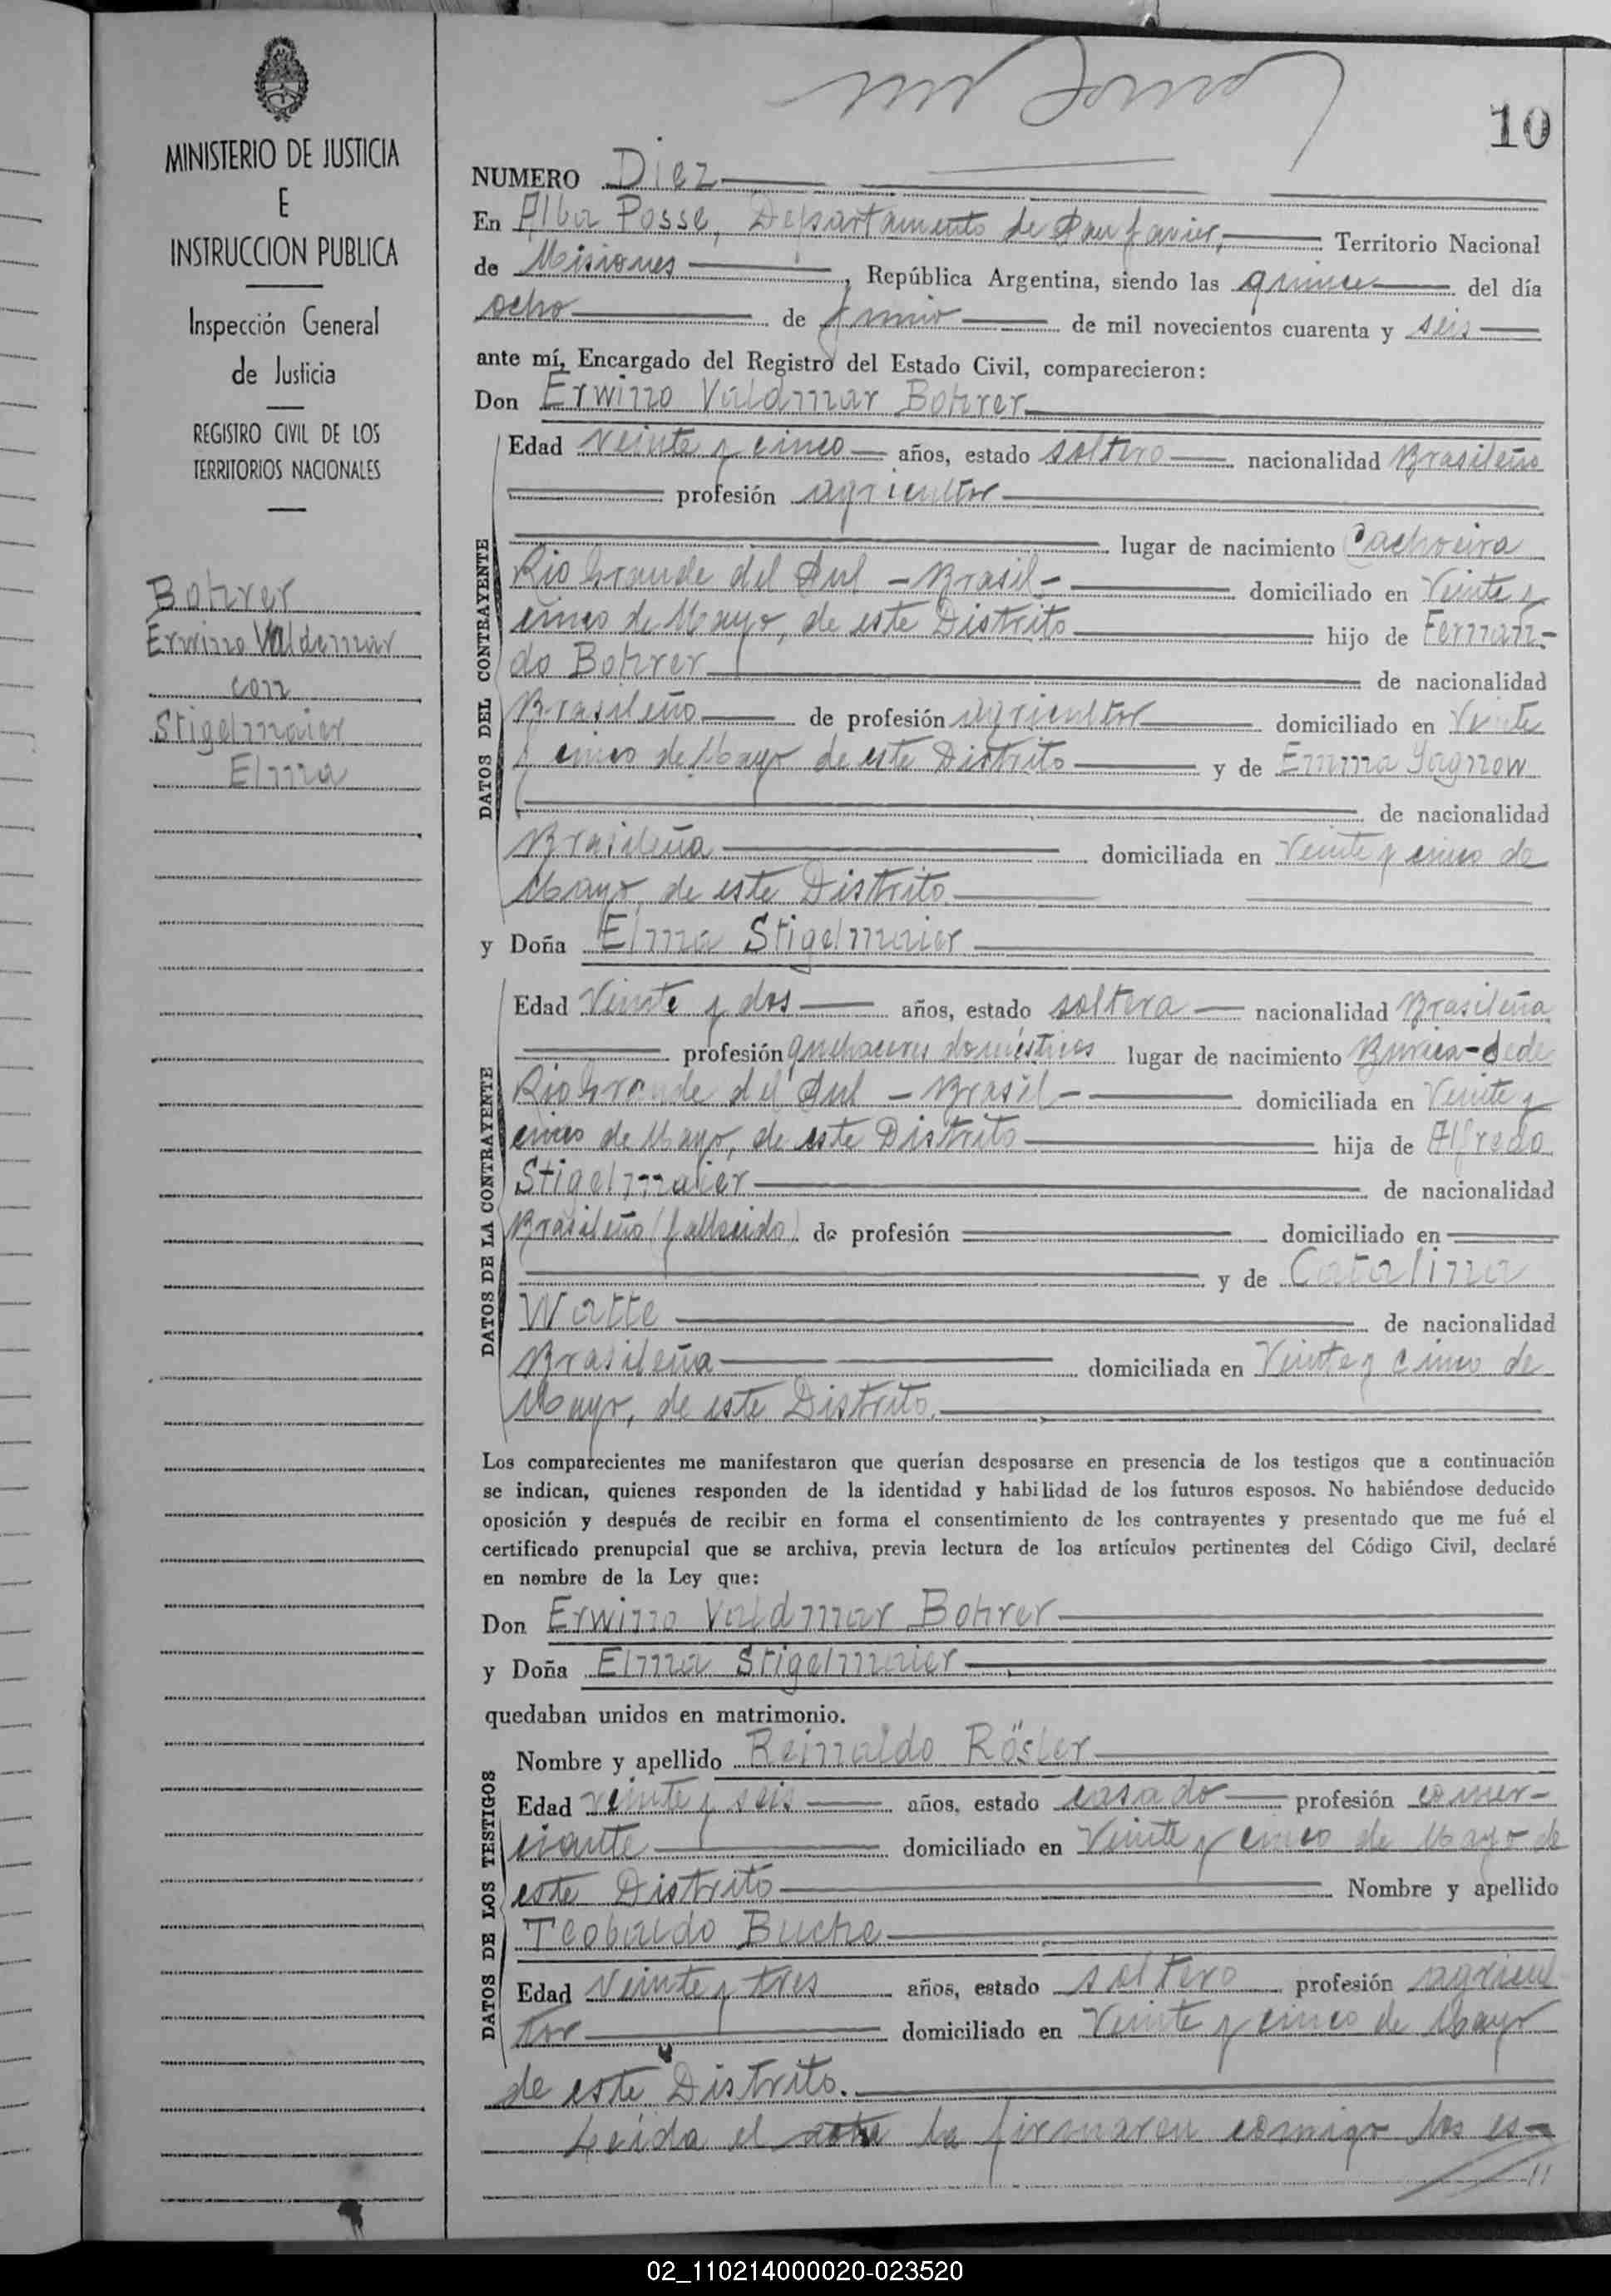 10
MINISTERIO DE JUSTICIA
E
INSTRUCCION PUBLICA
Inspección General
de Justicia
REGISTRO CIVIL DE LOS
TERRITORIOS NACIONALES
Bohrer
Erwino Valdemar
con
Stigelmaier
Elma
NUMERO Diez
En Alba Posse, Departamento de San Javier, Territorio Nacional
de Misiones, República Argentina, siendo las quince del día
ocho de junio de mil novecientos cuarenta y seis
ante mí, Encargado del Registro del Estado Civil, comparecieron:
Don Erwino Valdmar Bohrer
DATOS DEL CONTRAYENTE
Edad veinte y cinco años, estado soltero nacionalidad Brasileño
profesión agricultor
lugar de nacimiento Cachoeira
Rio Grande del Sul - Brasil - domiciliado en Veinte y
cinco de Mayo, de este Distrito hijo de Fernan-
do Bohrer de nacionalidad
Brasileño de profesión agricultor domiciliado en Veinte
y cinco de Mayo de este Distrito y de Emma
de nacionalidad
Brasileña domiciliada en Veinte y cinco de
Mayo, de este Distrito
y Doña Elma Stigelmaier
DATOS DE LA CONTRAYENTE
Edad Veinte y dos años, estado soltera nacionalidad Brasileña
profesión quehaceres domésticos lugar de nacimiento Burica-
Rio Grande del Sul - Brasil - domiciliada en Veinte y
cinco de Mayo, de este Distrito hija de Alfredo
Stigelmaier de nacionalidad
Brasileño (fallecido) de profesión domiciliado en
y de Catalina
Watte de nacionalidad
Brasileña domiciliada en Veinte y cinco de
Mayo, de este Distrito.
Los comparecientes me manifestaron que querían desposarse en presencia de los testigos que a continuación
se indican, quienes responden de la identidad y habilidad de los futuros esposos. No habiéndose deducido
oposición y después de recibir en forma el consentimiento de los contrayentes y presentado que me fué el
certificado prenupcial que se archiva, previa lectura de los artículos pertinentes del Código Civil, declaré
en nombre de la Ley que:
Don Erwino Valdmar Bohrer
y Doña Elma Stigelmaier
quedaban unidos en matrimonio.
DATOS DE LOS TESTIGOS
Nombre y apellido Reinaldo Rösler
Edad veinte y seis años, estado casado profesión comer-
ciante domiciliado en Veinte y cinco de Mayo de
este Distrito Nombre y apellido
Teobaldo Buche
Edad Veinte y tres años, estado soltero profesión agricul
tor domiciliado en Veinte y cinco de Mayo
de este Distrito.
Leida el acta la firmaron comigo los es-
02_110214000020-023520